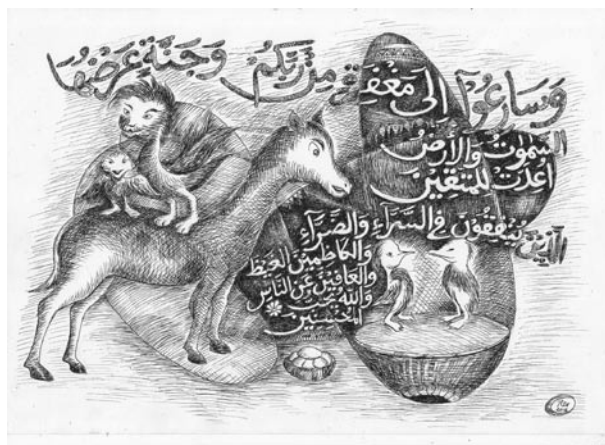 وَسَارِعُوٓا إِلَىٰ مَغْفِرَةٍ مِّن رَّبِّكُمْ وَجَنَّةٍ عَرْضُهَا
السَّمَٰوَٰتُ وَالْأَرْضُ
أُعِدَّتْ لِلْمُتَّقِينَ
الَّذِينَ يُنفِقُونَ فِي السَّرَّآءِ وَالضَّرَّآءِ
وَالْكَاظِمِينَ الْغَيْظَ
وَالْعَافِينَ عَنِ النَّاسِ
وَاللَّهُ يُحِبُّ
الْمُحْسِنِينَ